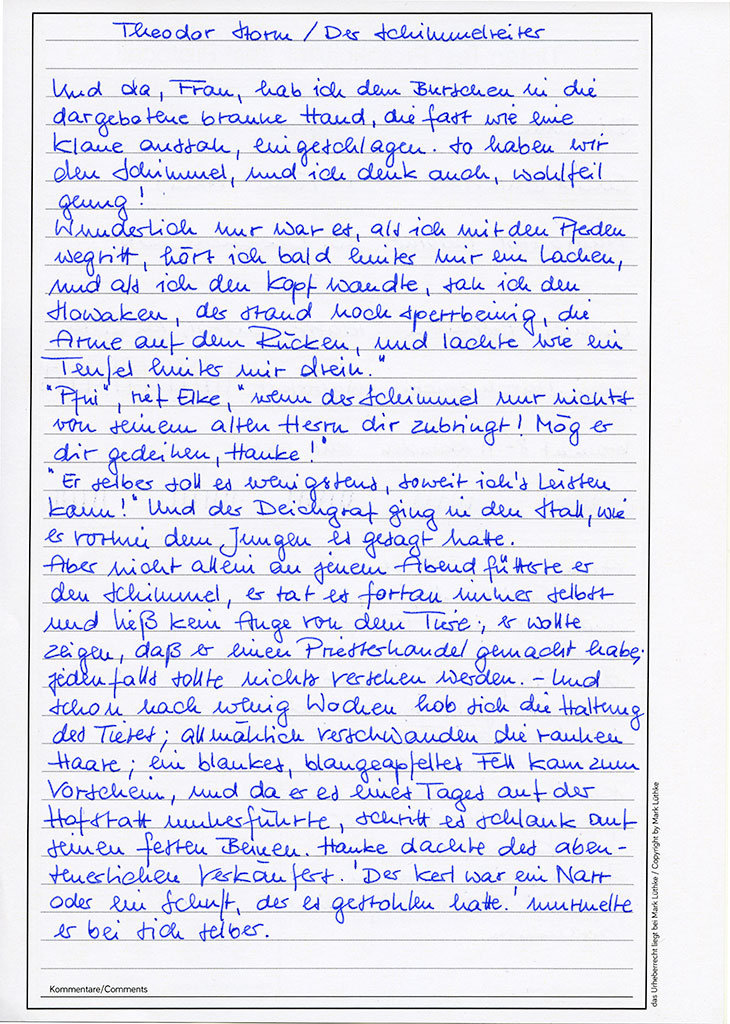 Theodor Storm / Der Schimmelreiter
Und da, Frau, hab ich dem Burschen in die
dargebotene braune Hand, die fast wie eine
Klaue aussah, eingeschlagen. So haben wir
den Schimmel, und ich denk auch, wohlfeil
genug!
Wunderlich nur war es, als ich mit den Pferden
wegritt, hört ich bald hinter mir ein Lachen,
und als ich den Kopf wandte, sah ich den
Slowaken, der stand noch sperrbeinig, die
Arme auf dem Rücken, und lachte wie ein
Teufel hinter mir drein."
"Pfui", rief Elke, "wenn der Schimmel nur nichts
von seinem alten Herrn dir zubringt! Mög er
dir gedeihen, Hauke!"
"Er selber soll es wenigstens, soweit ich's leisten
kann!" Und der Deichgraf ging in den Stall, wie
er vorhin dem Jungen es gesagt hatte.
Aber nicht allein an jenem Abend fütterte er
den Schimmel, er tat es fortan immer selbst
und ließ kein Auge von dem Tiere; er wollte
zeigen, daß er einen Priesterhandel gemacht habe;
jedenfalls sollte nichts versehen werden. – Und
schon nach wenig Wochen hob sich die Haltung
des Tieres; allmählich verschwanden die rauhen
Haare; ein blankes, blaugeapfeltes Fell kam zum
Vorschein, und da er es eines Tages auf der
Hofstatt umherführte, schritt es schlank auf
seinen festen Beinen. Hauke dachte des aben-
teuerlichen Verkäufers. 'Der Kerl war ein Narr
oder ein Schuft, der es gestohlen hatte.' murmelte
er bei sich selber.
Kommentare/Comments
das Urheberrecht liegt bei Mark Lüthke / Copyright by Mark Lüthke